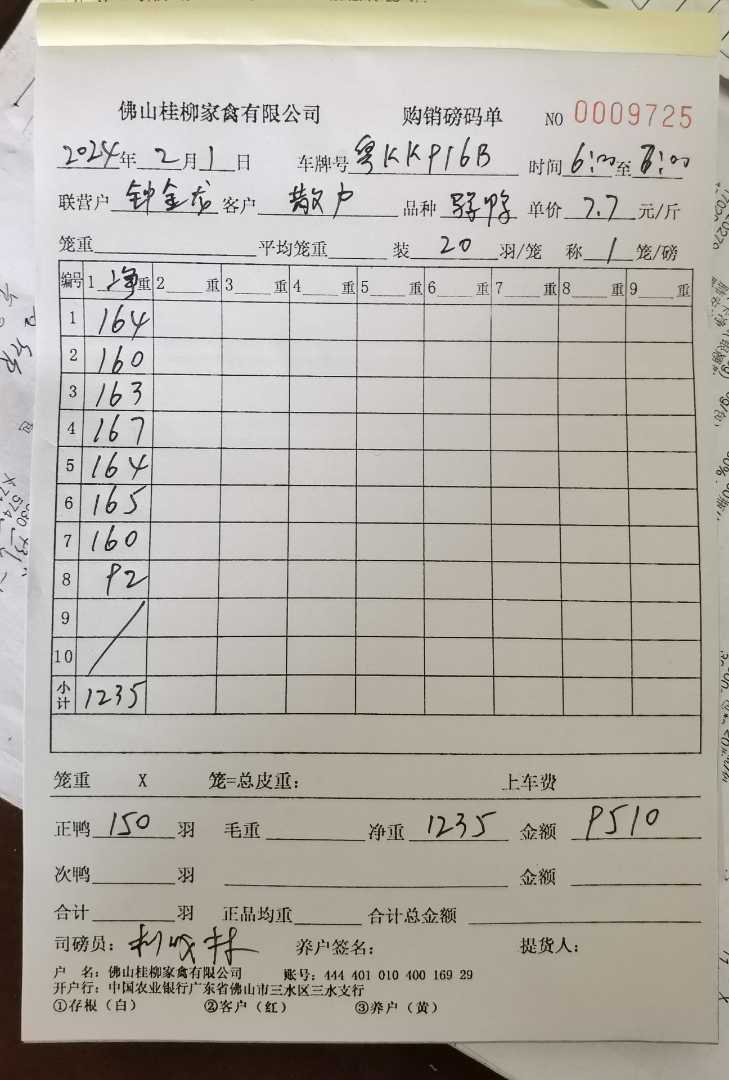 佛山桂柳家禽有限公司 购销磅码单 NO 0009725
2024年 2月1日 车牌号 粤KK916B 时间 6:00至7:00
联营户 钟金龙 客户 散户 品种 单价 7.7 元/斤
笼重 平均笼重 装 20 羽/笼 称 1 笼/磅
编号 1 净重 2 重 3 重 4 重 5 重 6 重 7 重 8 重 9 重
1 164
2 160
3 163
4 167
5 164
6 165
7 160
8 92
9
10
小计 1235
笼重 X 笼=总皮重: 上车费
正鸭 150 羽 毛重 净重 1235 金额 9510
次鸭 羽 金额
合计 羽 正品均重 合计总金额
司磅员: 养户签名: 提货人:
户 名: 佛山桂柳家禽有限公司 账号: 444 401 010 400 169 29
开户行: 中国农业银行广东省佛山市三水区三水支行
①存根(白) ②客户(红) ③养户(黄)